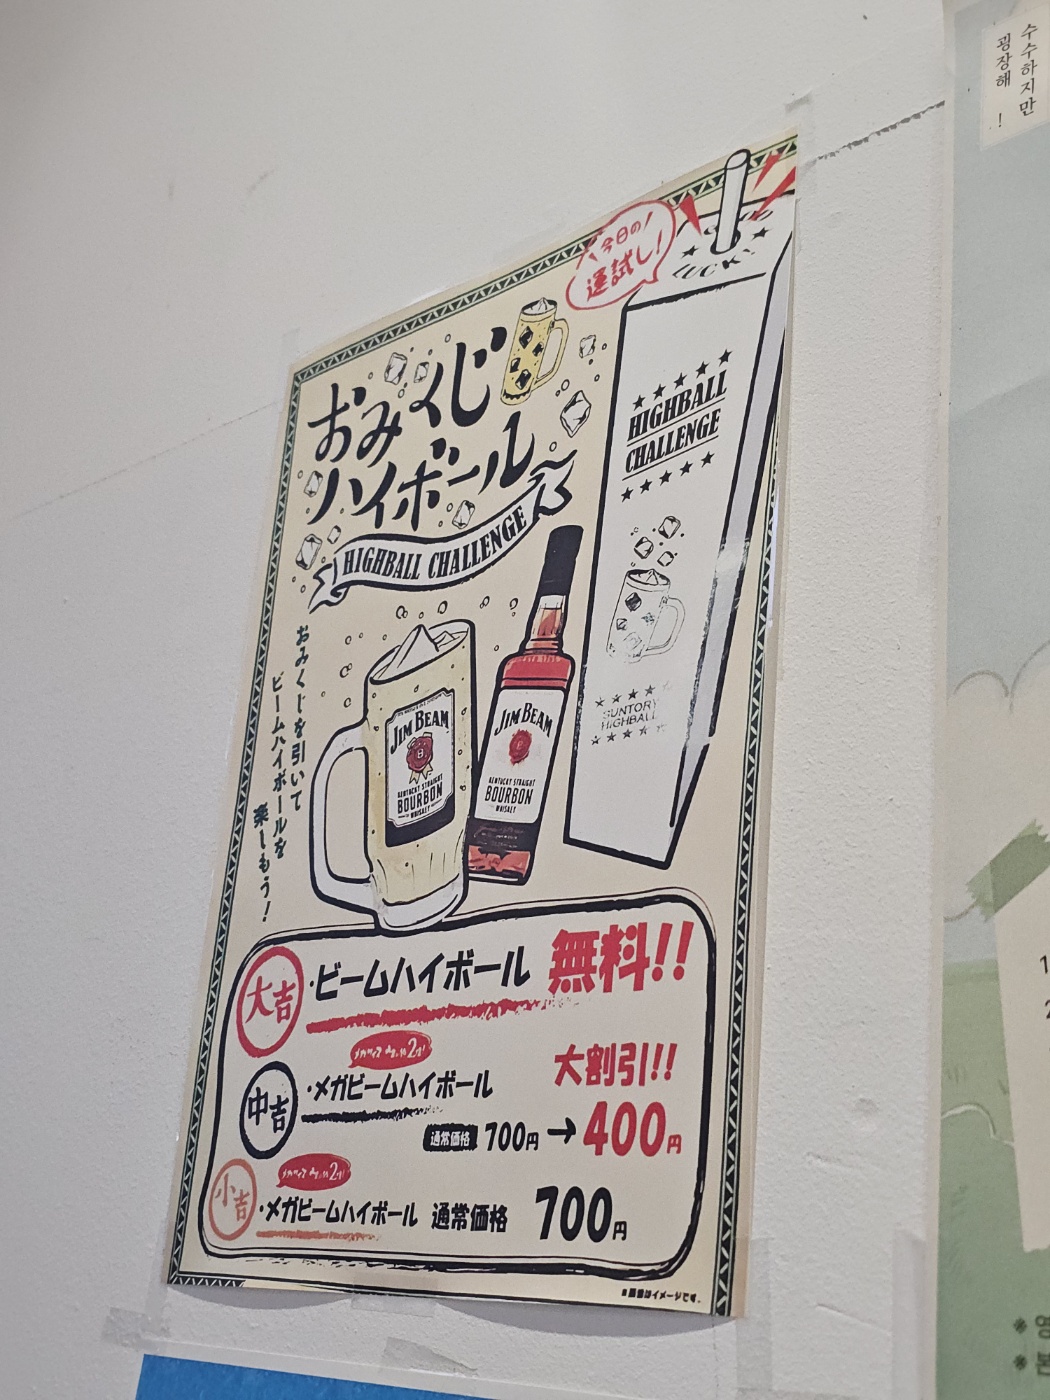 今日の!
運試し!
LUCKY
おみくじ
ハイボール
HIGHBALL CHALLENGE
HIGHBALL
CHALLENGE
SUNTORY
HIGHBALL
おみくじを引いて
ビームハイボールを
楽しもう!
JIM BEAM
KENTUCKY STRAIGHT
BOURBON
WHISKEY
JIM BEAM
KENTUCKY STRAIGHT
BOURBON
WHISKEY
大吉 ・ビームハイボール 無料!!
中吉 ・メガビームハイボール 大割引!!
通常価格 700円→400円
小吉 ・メガビームハイボール 通常価格 700円
※画像はイメージです。
수수하지만
굉장해 !